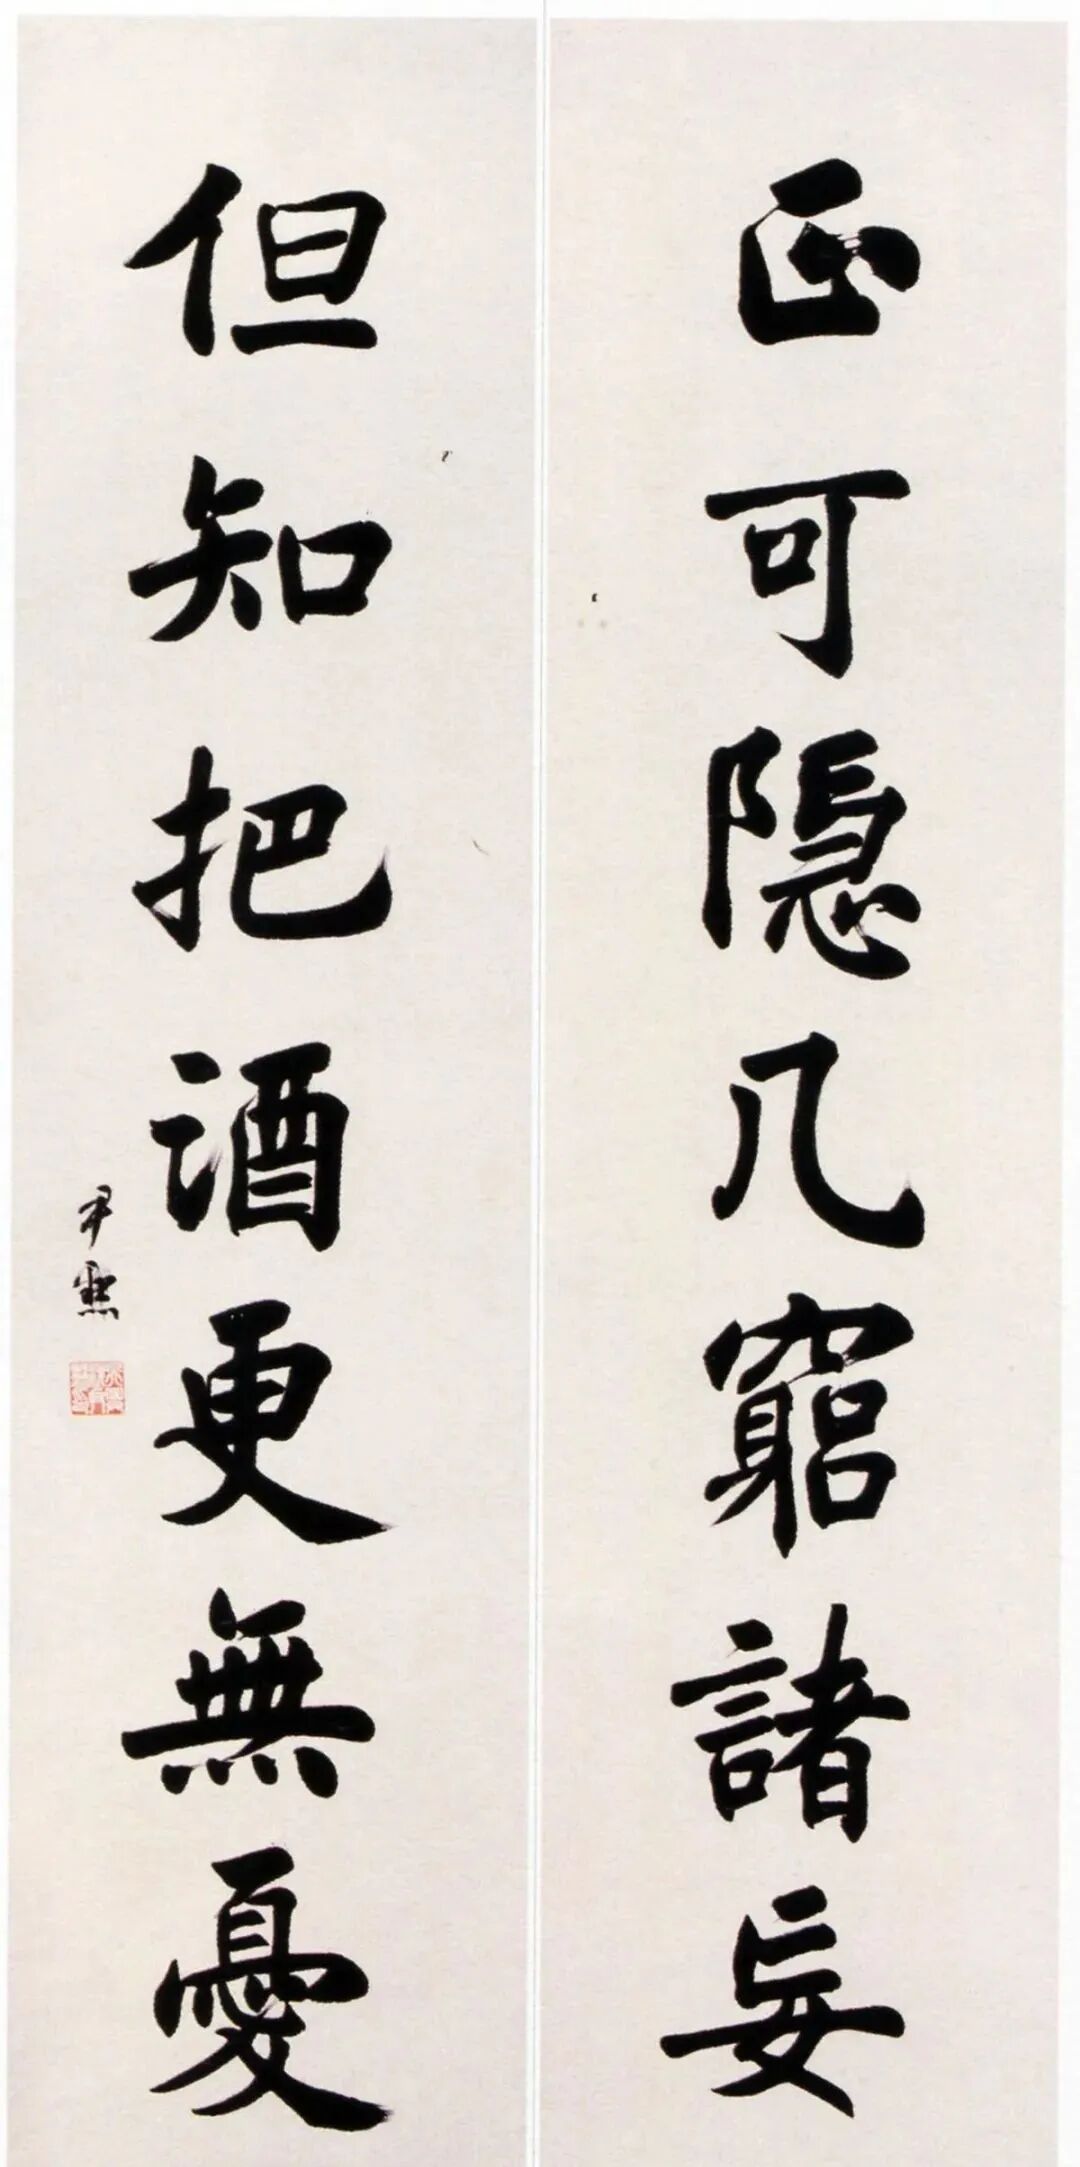 正可隱几窮諸妄
但知把酒更無憂
尹默